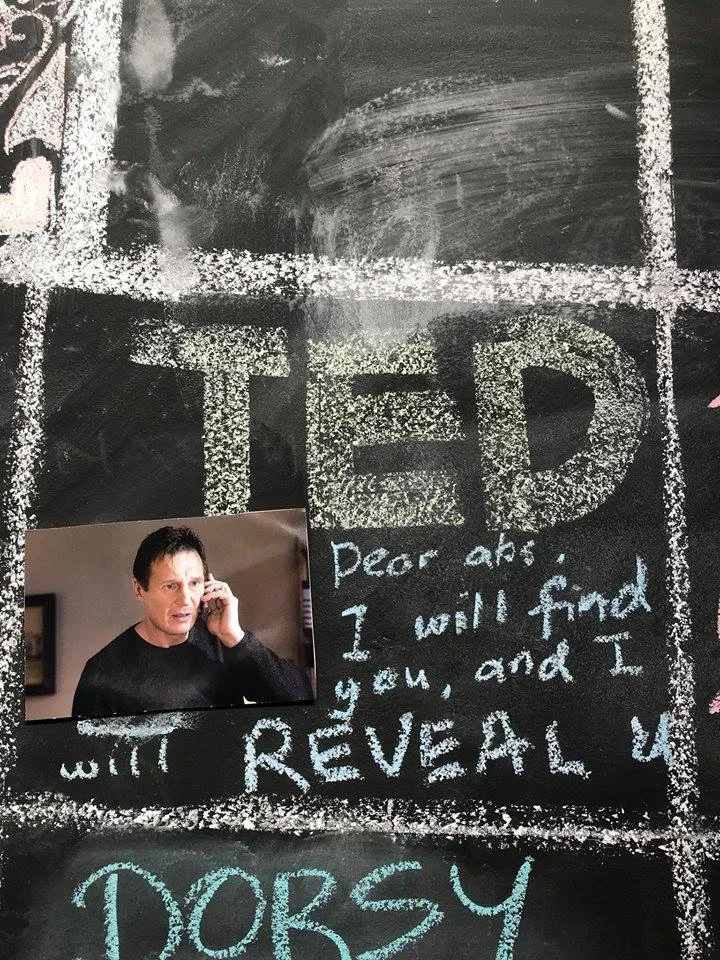 TED
Dear abs.
I will find
you, and I
will REVEAL u
DORSY